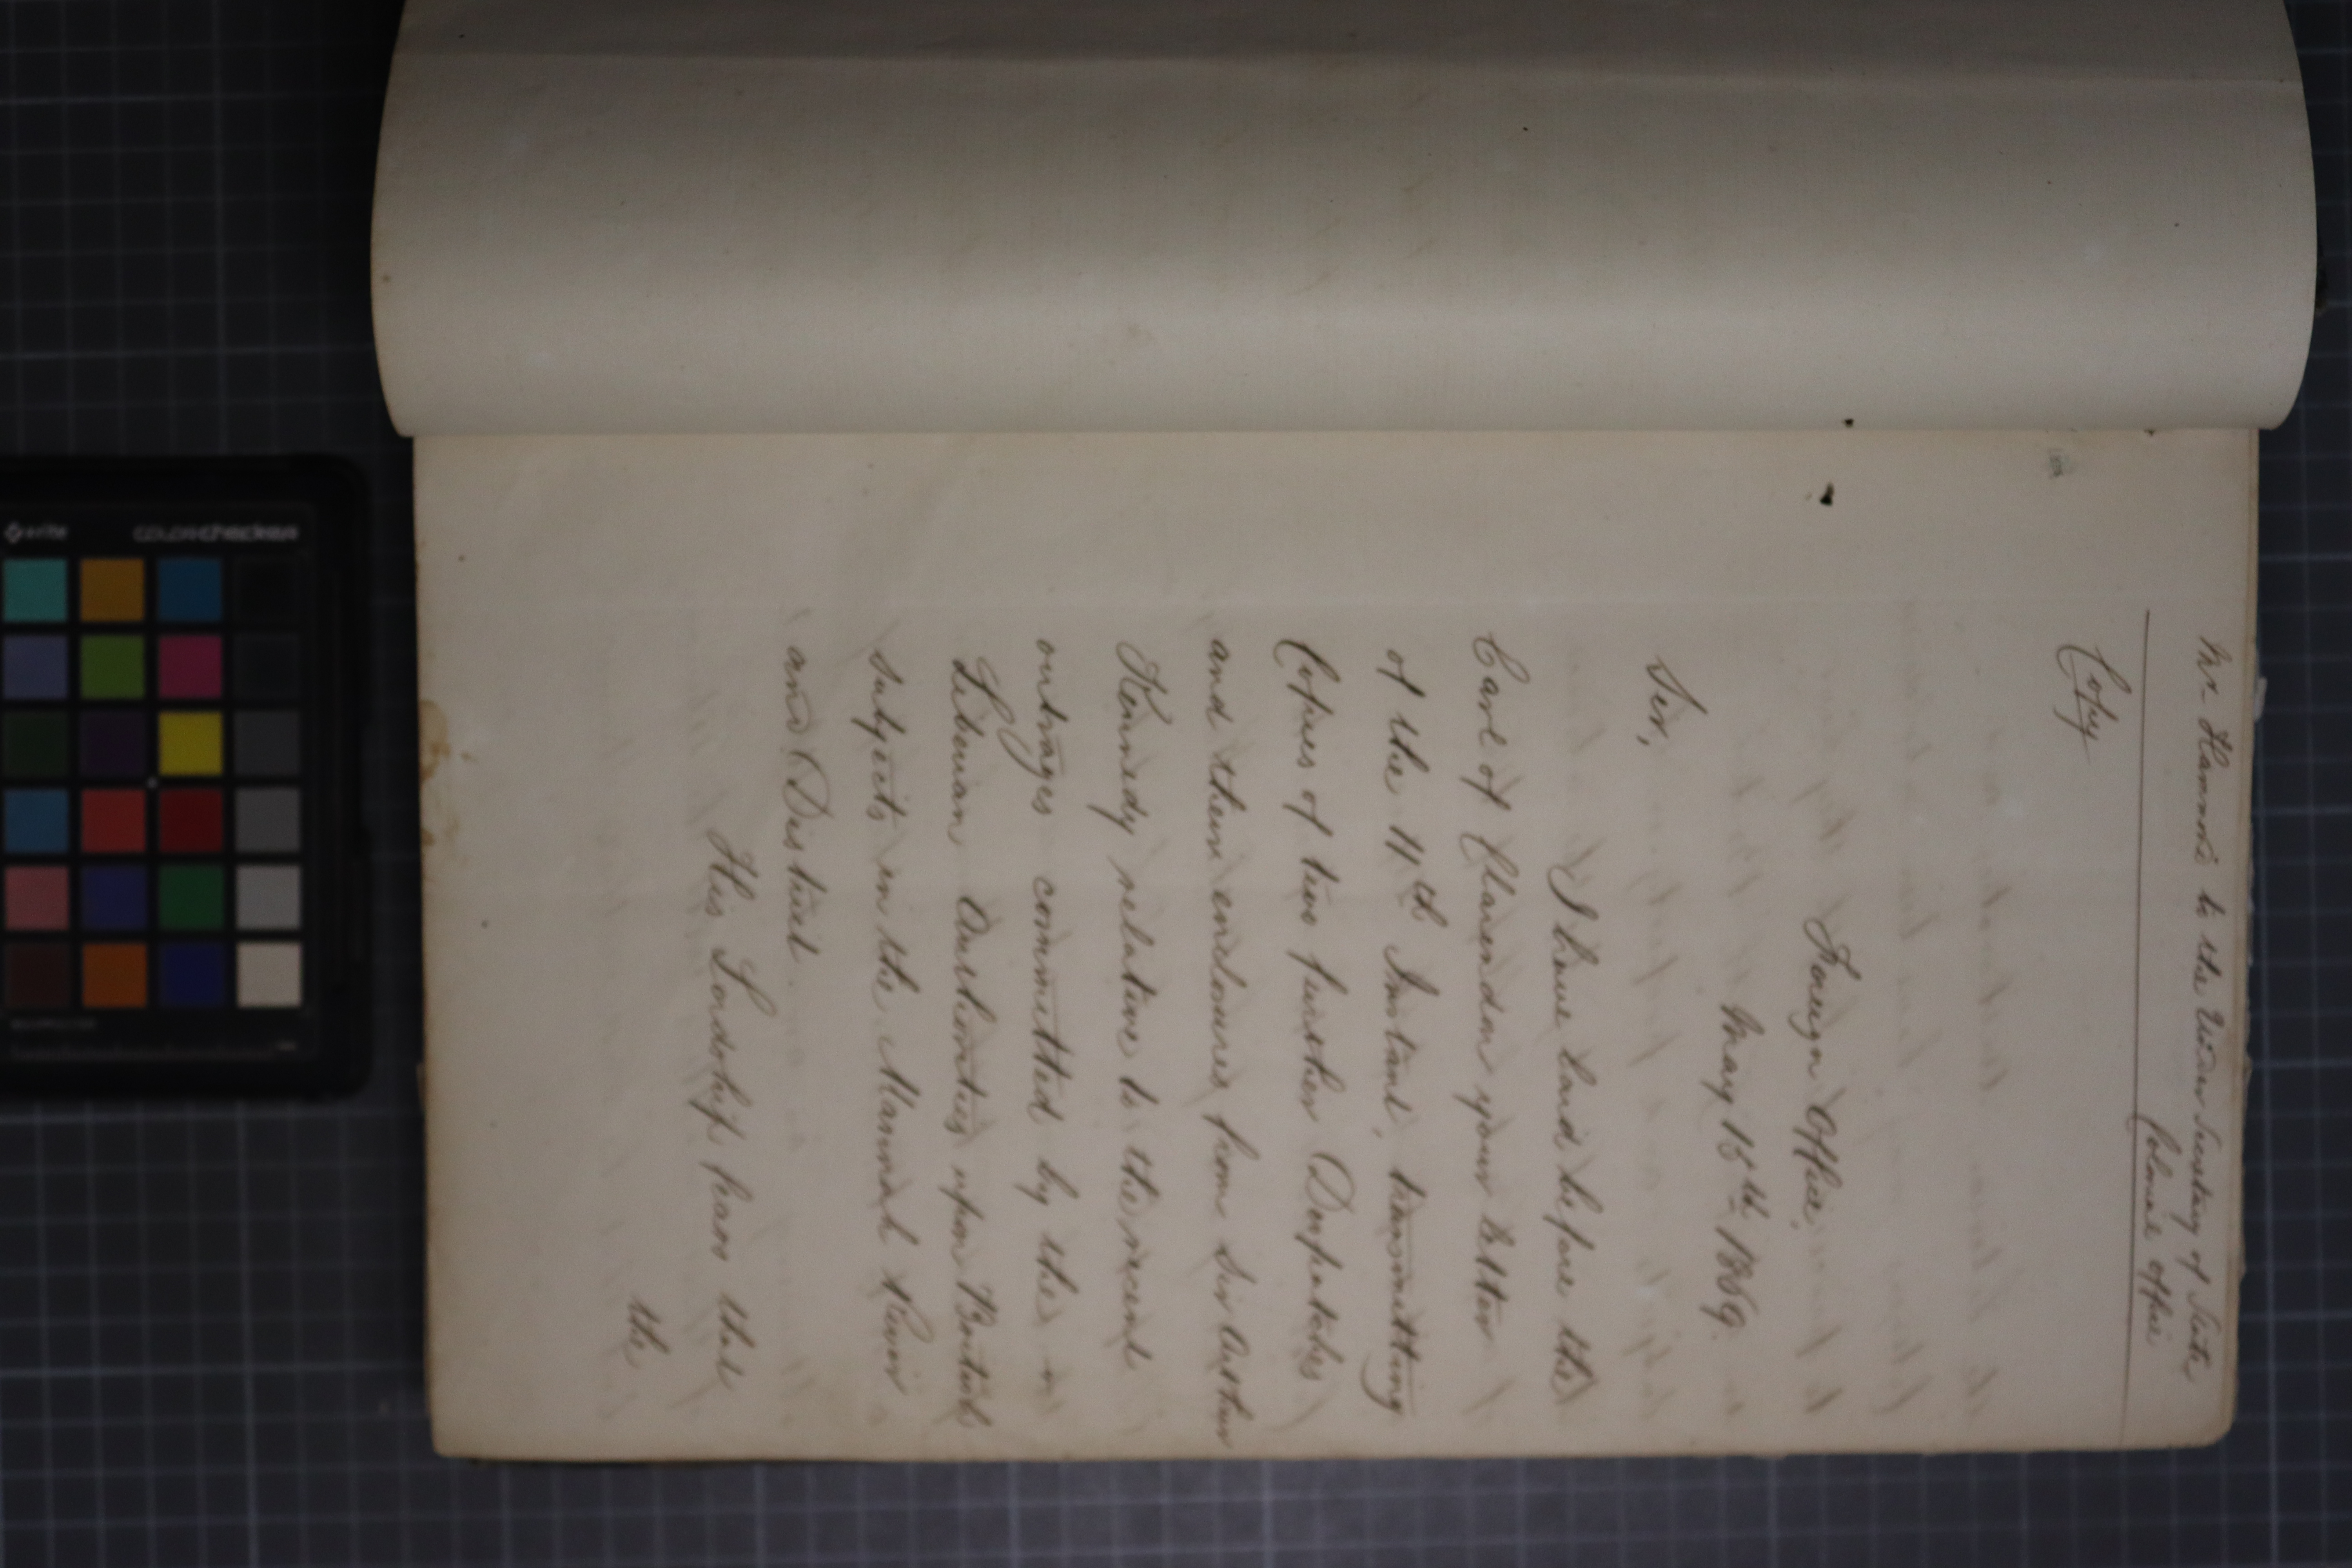 Mr. Hammond to the Under Secretary of State
Colonial Office
Copy
Foreign Office,
May 15th 1869.
Sir,
I have laid before the
Earl of Clarendon your letter
of the 11th Instant, transmitting
Copies of two further Despatches
and their enclosures from Sir Arthur
Kennedy relative to the recent
outrages committed by the
Liberian Authorities upon British
subjects in the Mannah River
and District.
His Lordship fears that
the
colorchecker